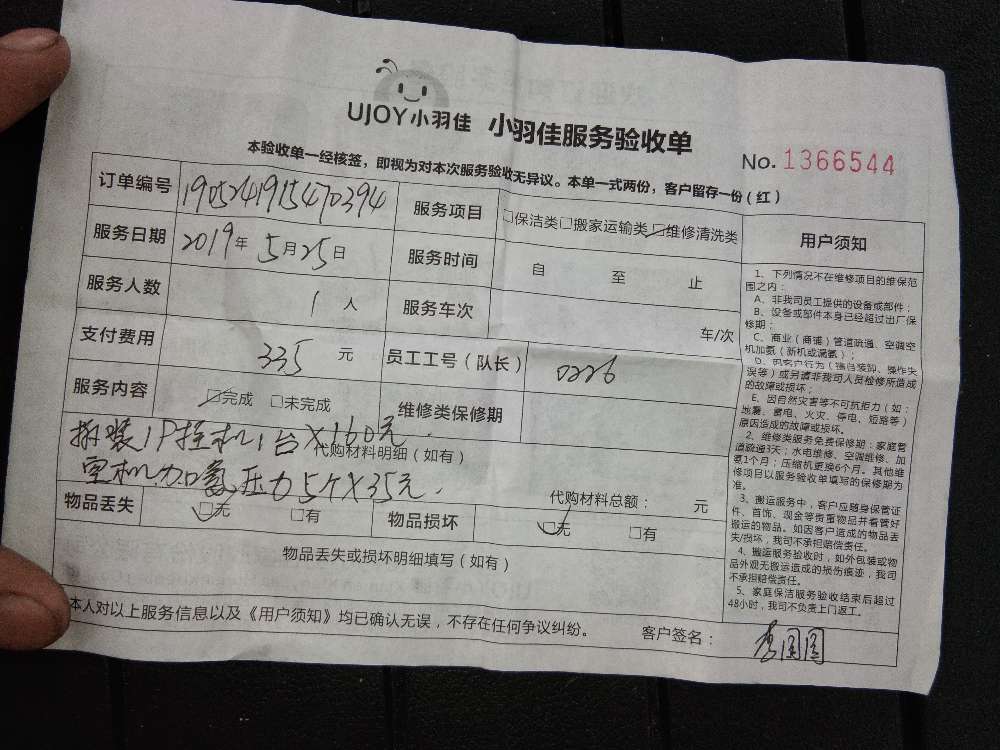 UJOY小羽佳 小羽佳服务验收单
No. 1366544
本验收单一经核签，即视为对本次服务验收无异议。本单一式两份，客户留存一份（红）
订单编号 1905241915470394 服务项目 □保洁类□搬家运输类☑维修清洗类
服务日期 2019年5月25日 服务时间 自 至 止
服务人数 1人 服务车次 车/次
支付费用 335元 员工工号（队长） 0226
服务内容 ☑完成 □未完成 维修类保修期
拆装1P挂机1台×160元.
代购材料明细（如有）
空机加氨压力5个×35元.
代购材料总额： 元
物品丢失 ☑无 □有 物品损坏 ☑无 □有
物品丢失或损坏明细填写（如有）
本人对以上服务信息以及《用户须知》均已确认无误，不存在任何争议纠纷。 客户签名：
用户须知
1、下列情况不在维修项目的维保范
围之内：
A、非我司员工提供的设备或部件；
B、设备或部件本身已经超过出厂保
修期；
C、商业（商铺）管道疏通、空调空
机加氨（新机或漏氨）；
D、因客户行为（擅自装卸、操作失
误等）或另请非我司人员检修所造成
的故障或损坏；
E、因自然灾害等不可抗拒力（如：
地震、蓄电、火灾、停电、短路等）
原因造成的故障或损坏。
2、维修类服务免费保修期：家庭管
道疏通3天；水电维修、空调维修、加
氨1个月；压缩机更换6个月。其他维
修项目以服务验收单填写的保修期为
准。
3、搬运服务中，客户应随身保管证
件、首饰、现金等贵重物品并看管好
搬运的物品。如因客户造成的物品丢
失/损坏，我司不承担赔偿责任。
4、搬运服务验收时，如外包装或物
品外观无搬运造成的损伤痕迹，我司
不承担赔偿责任。
5、家庭保洁服务验收结束后超过
48小时，我司不负责上门返工。